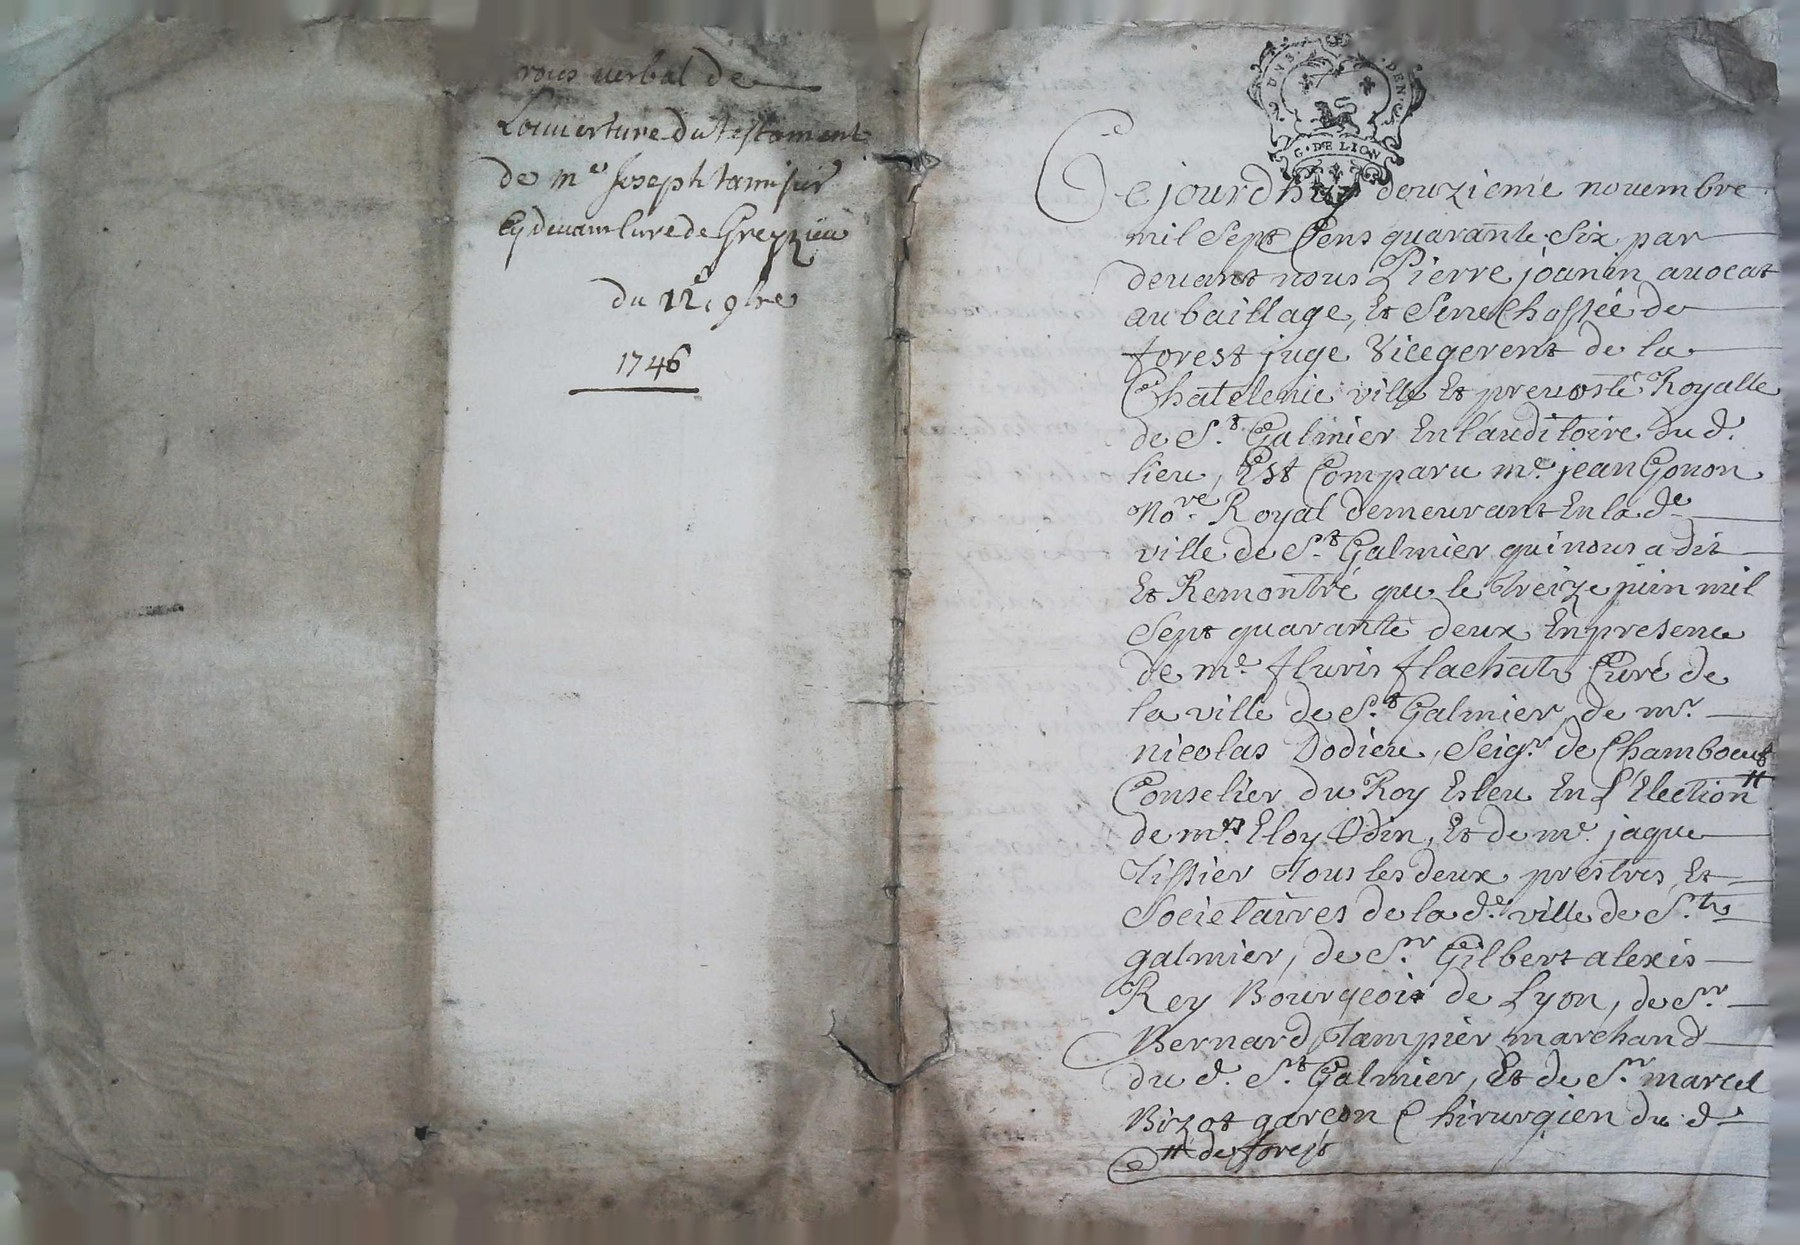 verbal de
Louverture du testament
de me Joseph tamisier
Cy devant Curé de Greyzieu
du 12e 9bre
1746
G. DE LION
Ce jourdhuy douzieme novembre
mil Sept Cens quarante Six par
devant nous Pierre joanin avocat
au baillage, Et Senechassée de
forest juge Vicegerent de la
Chatelenie ville Et prevosté Royalle
de St Galmier En l'auditoire du d.
lieu, Est Comparu me jean Gonon
Nore Royal demeurant En la de
ville de St Galmier qui nous a dit
Et Remontré que le Treize juin mil
Sept quarante deux En presence
de me fluris flachats Curé de
la ville de St Galmier, de mr
nicolas Dodieu, Seigr de Chamboeuf
Conselier du Roy Esleu En L'Election #
de mre Eloy Odin, Et de me jaque
Tissier Tous les deux prestres, Et
Societaires de la de ville de St
galmier, de Sr Gilbert alexis
Rey Bourgeois de Lyon, de Sr
Bernard Tampier marchand
du d. St Galmier, Et de Sr marcel
Bizot garçon Chirurgien du d
# de forest